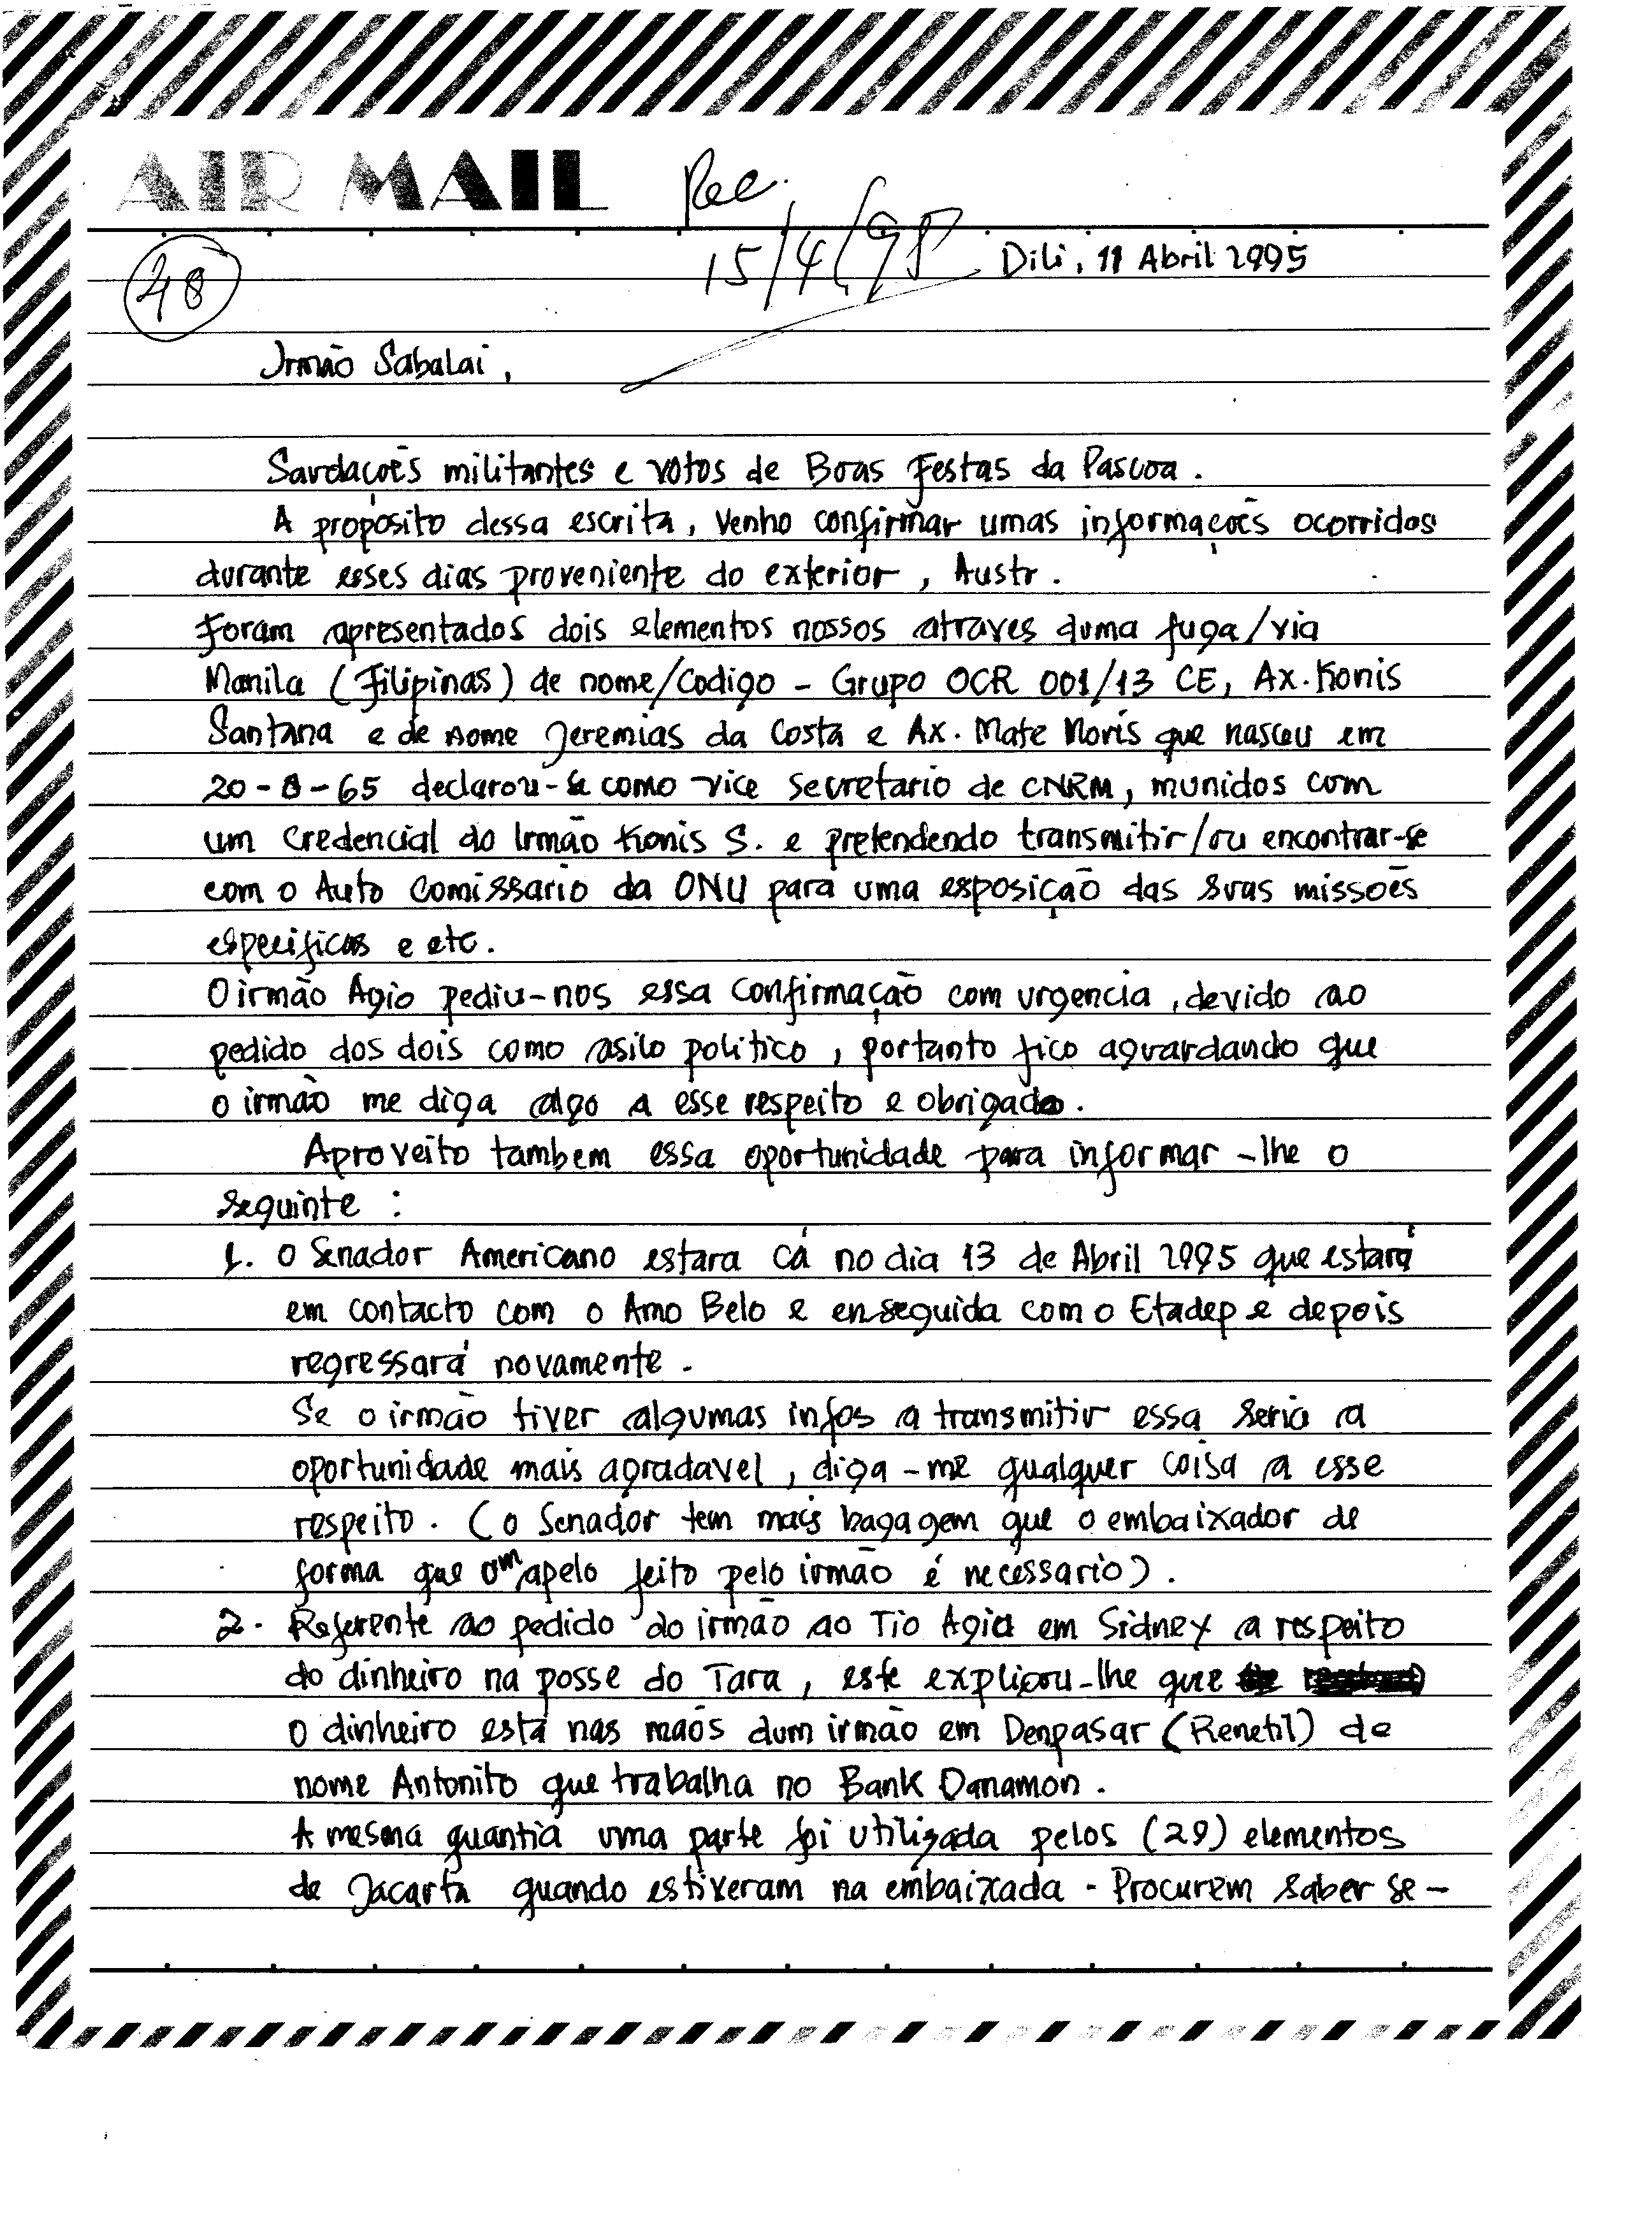 AIR MAIL Rec.
15/4/95 Dili, 11 Abril 1995
48
Irmão Sabalai,
Saudações militantes e votos de Boas Festas da Pascoa.
A propósito dessa escrita, venho confirmar umas informações ocorridos
durante esses dias proveniente do exterior, Austr.
Foram apresentados dois elementos nossos atraves duma fuga/via
Manila (Filipinas) de nome/Codigo - Grupo OCR 001/13 CE, Ax. Konis
Santana e de nome Jeremias da Costa e Ax. Mate Moris que nasceu em
20-8-65 declarou-se como vice secretario de CNRM, munidos com
um credencial do Irmão Konis S. e pretendendo transmitir/ou encontrar-se
com o Auto Comissario da ONU para uma esposição das suas missões
especificas e etc.
O irmão Agio pediu-nos essa confirmação com urgencia, devido ao
pedido dos dois como asilo politico, portanto fico aguardando que
o irmão me diga algo a esse respeito e obrigado.
Aproveito tambem essa oportunidade para informar-lhe o
seguinte :
1. O Senador Americano estara cá no dia 13 de Abril 1995 que estará
em contacto com o Amo Belo e enseguida com o Etadep e depois
regressará novamente.
Se o irmão tiver algumas infos a transmitir essa seria a
oportunidade mais agradavel, diga-me qualquer coisa a esse
respeito. (o Senador tem mais bagagem que o embaixador de
forma que um apelo feito pelo irmão é necessario).
2. Referente ao pedido do irmão ao Tio Agio em Sidney a respeito
do dinheiro na posse do Tara, este explicou-lhe que
o dinheiro está nas mãos dum irmão em Denpasar (Renetil) de
nome Antonito que trabalha no Bank Danamon.
A mesma quantia uma parte foi utilizada pelos (29) elementos
de Jacarta quando estiveram na embaixada - Procurem saber se-